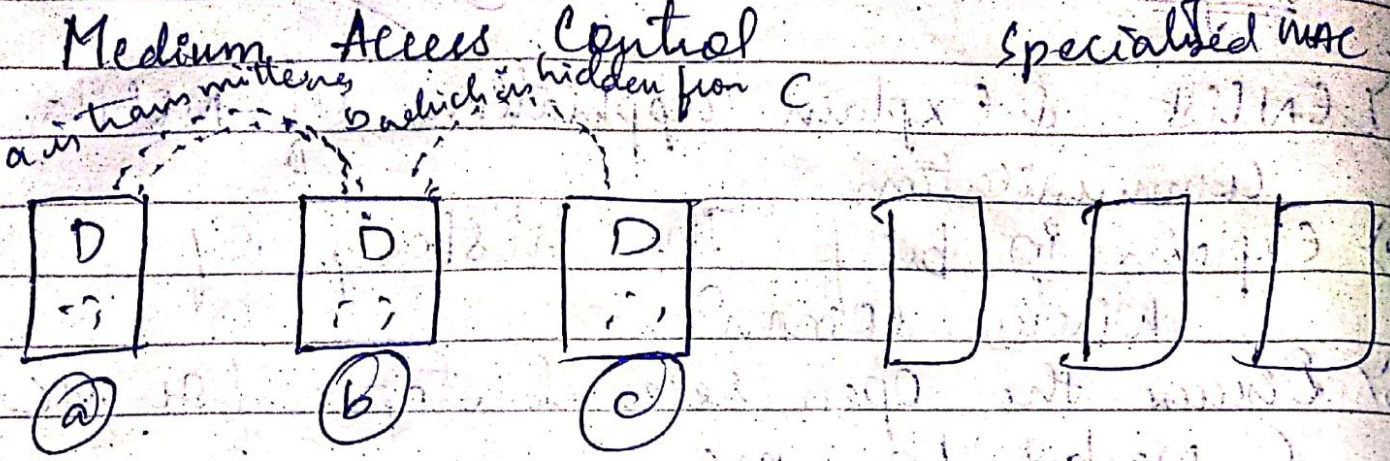 Medium Access Control specialised MAC
a is transmitting b which is hidden from C
D D D
a b c